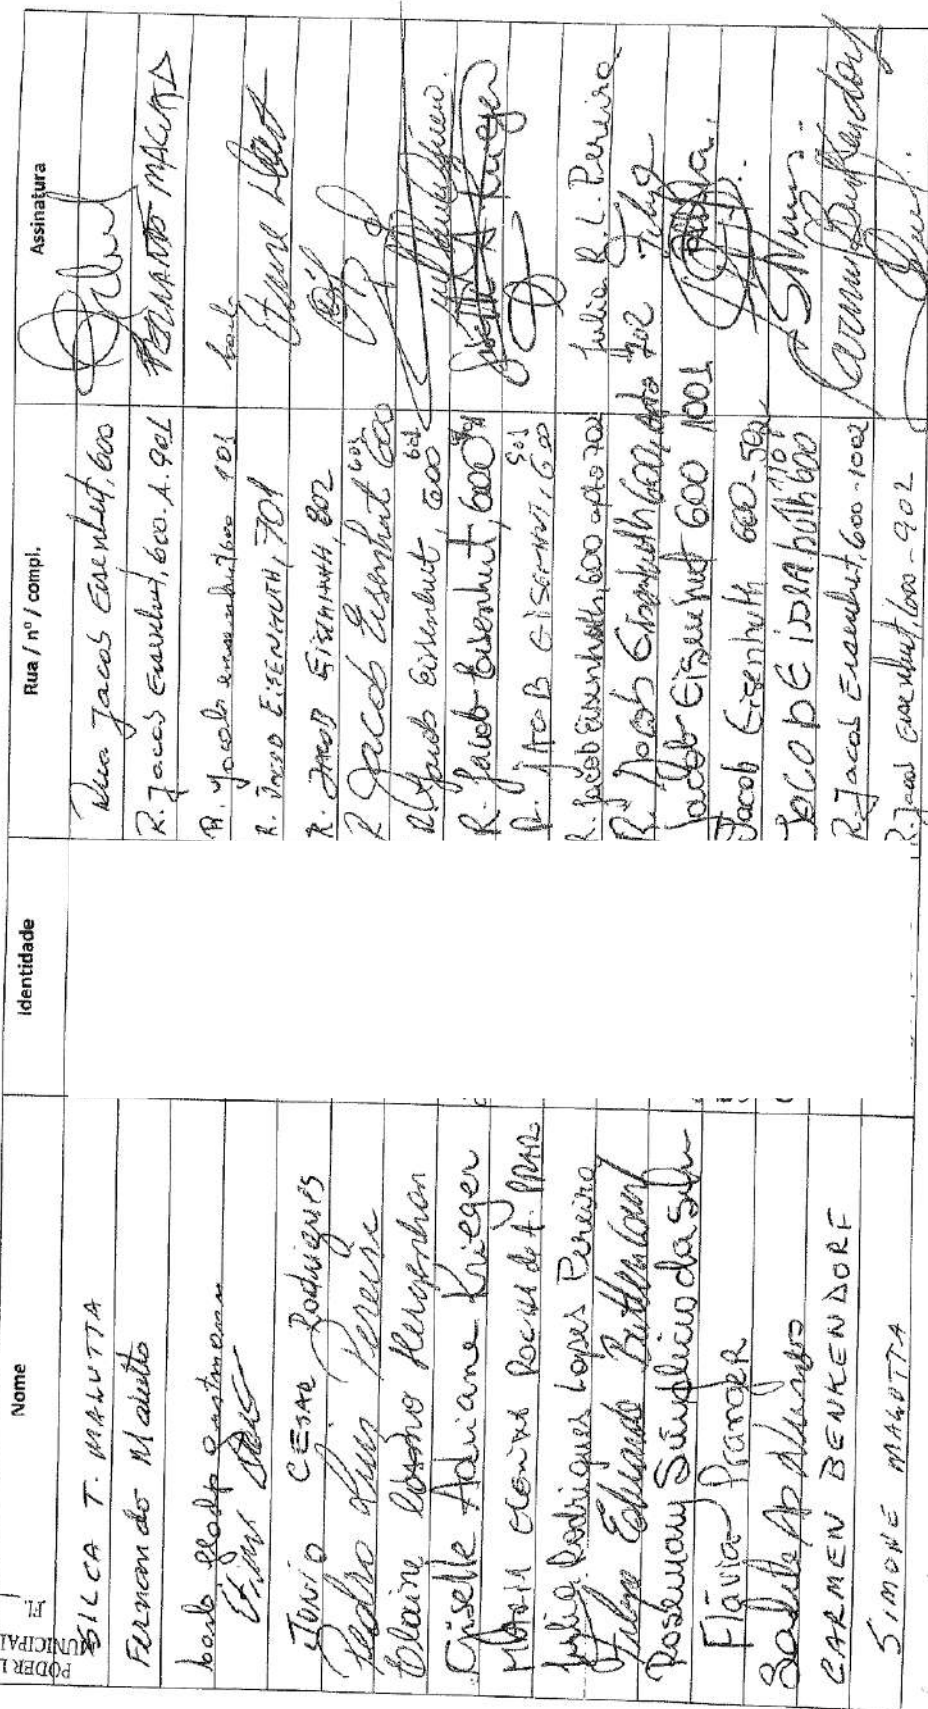 PODER L
MUNICIPAL
Fl.
Nome Identidade Rua / nº / compl. Assinatura
SILCA T. MALUTTA Rua Jacob Eisenhut, 600
Fernando Malutta R. Jacob Eisenhut, 600 - A. 901 FERNANDO MALUTTA
R. Jacob 600 101
R. Jacob EISENHUTH, 701
Junio CESAR Rodrigues R. JACOB EISENHUTH, 802
Pedro Luis Pereira R Jacob Eisenhut 600 602
Elaine Hergenhan R Jacob Eisenhut 600 601
Giselle Adriane Krieger R. Jacob Eisenhut, 600 Giselle A. Krieger
R. JACOB EISENHUT, 600 501
Julia Rodrigues Lopes Pereira R. Jacob Eisenhuth, 600 apto 702 Julia R. L. Pereira
Felipe Eduardo Bittencourt R. Jacob Eisenhuth 600, apto 702 Felipe
Rosemary Simplicio da Silva Jacob Eisenhut 600 1001
Flávia Pranger Jacob Eisenhuth 600 - 502
Salete Ap 600 101
CARMEN BENKENDORF R. Jacob Eisenhut, 600 - 1002 Carmen Benkendorf
SIMONE MALUTTA R. Jacob Eisenhut, 600 - 902